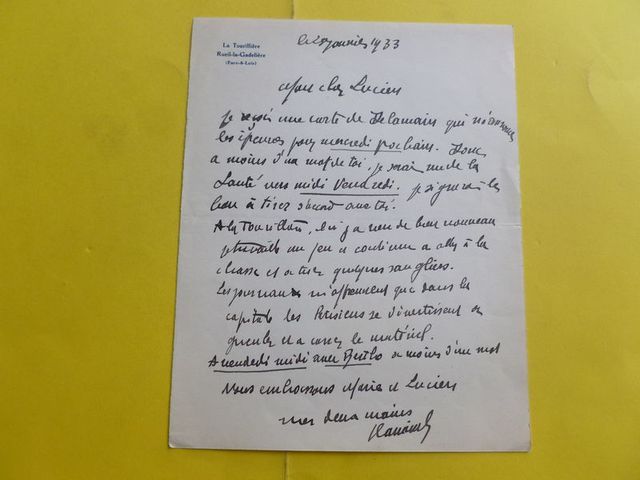 La Tourillière
Rueil-la-Gadelière
(Eure-&-Loir)
le janvier 1933
Mon cher Lucien
je reçois une carte de Delamain qui
les épreuves pour mercredi prochain. Donc
a moins d'un mot de toi, je serai rue de la
Santé vers midi Vendredi. je signerai les
bon à tirer avec toi.
A la Tourillière, il n'y a rien de bien nouveau
je travaille un peu et continue a aller à la
chasse et a tirer quelques sangliers.
Les journaux m'apprennent que dans la
capitale les Parisiens se divertissent en
et a casser le matériel.
A vendredi midi avec a moins d'un mot
Nous embrassons Marie et Lucien
mes deux mains